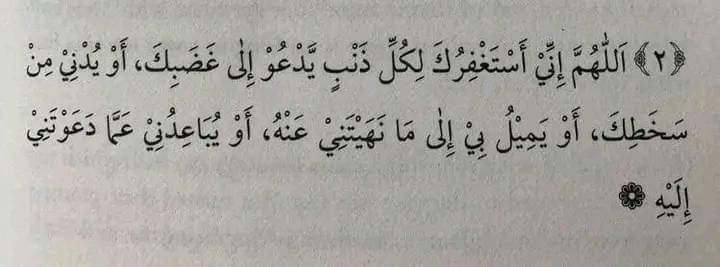 ﴿٢﴾ اَللّٰهُمَّ إِنِّيْ أَسْتَغْفِرُكَ لِكُلِّ ذَنْبٍ يَّدْعُوْ إِلٰى غَضَبِكَ، أَوْ يُدْنِيْ مِنْ
سَخَطِكَ، أَوْ يَمِيْلُ بِيْ إِلٰى مَا نَهَيْتَنِيْ عَنْهُ، أَوْ يُبَاعِدُنِيْ عَمَّا دَعَوْتَنِيْ
إِلَيْهِ ❁